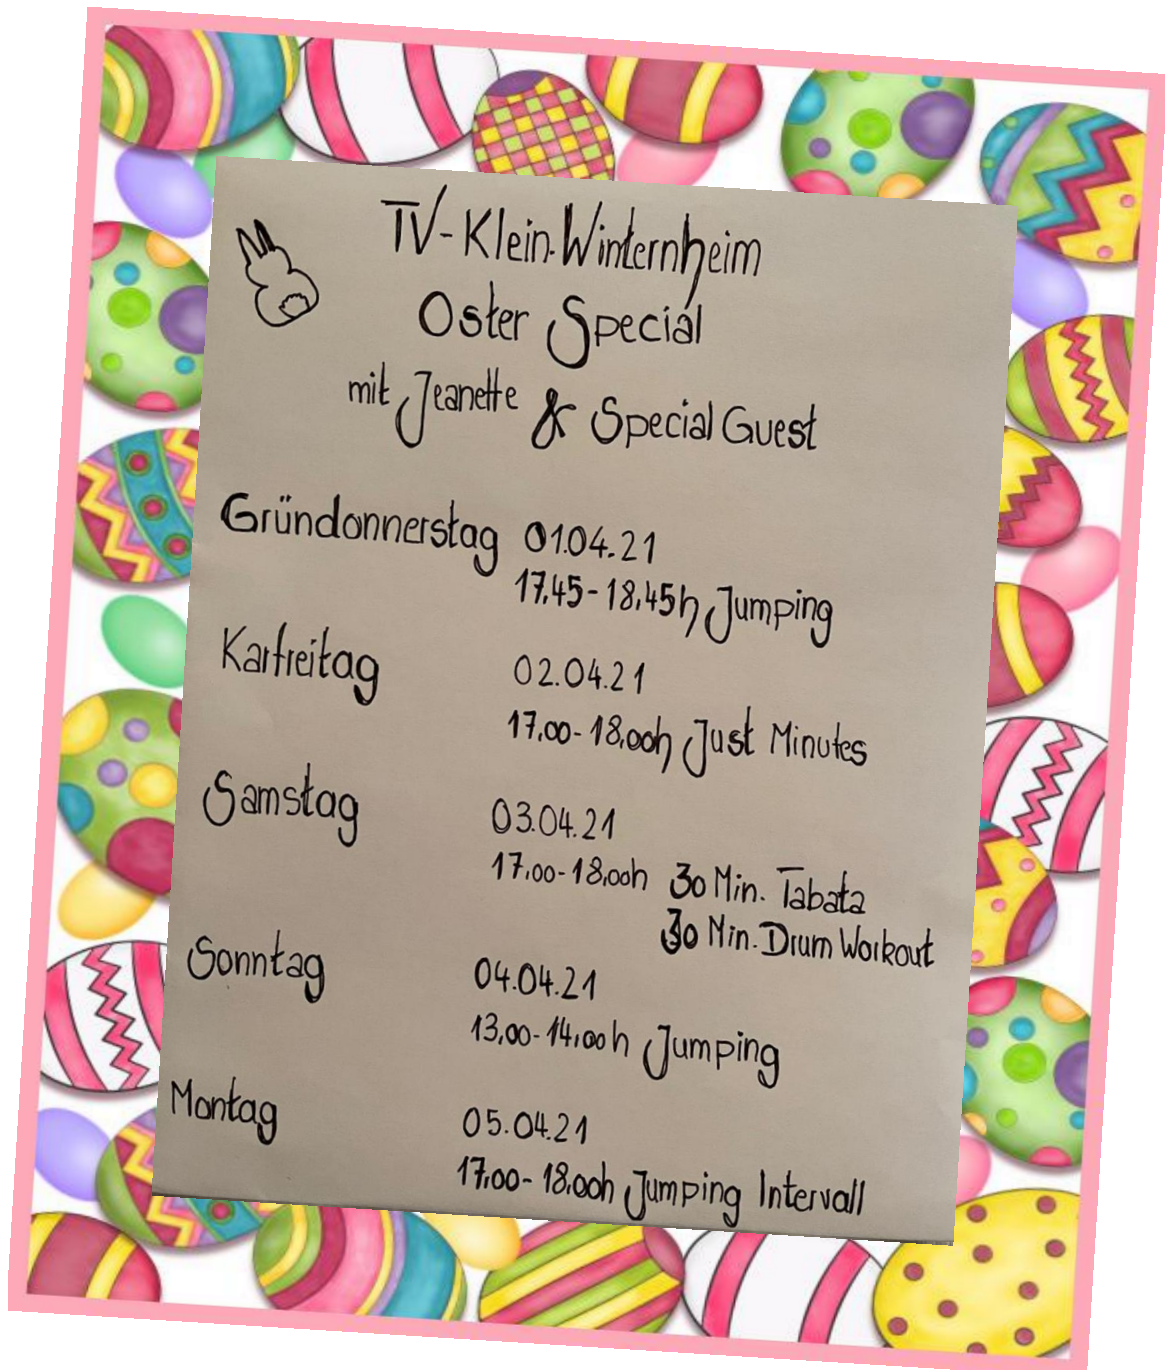 TV-Klein-Winternheim
Oster Special
mit Jeanette & Special Guest
Gründonnerstag 01.04.21
17.45-18.45h Jumping
Karfreitag 02.04.21
17.00-18.00h Just Minutes
Samstag 03.04.21
17.00-18.00h 30 Min. Tabata
30 Min. Drum Workout
Sonntag 04.04.21
13.00-14.00h Jumping
Montag 05.04.21
17.00-18.00h Jumping Intervall